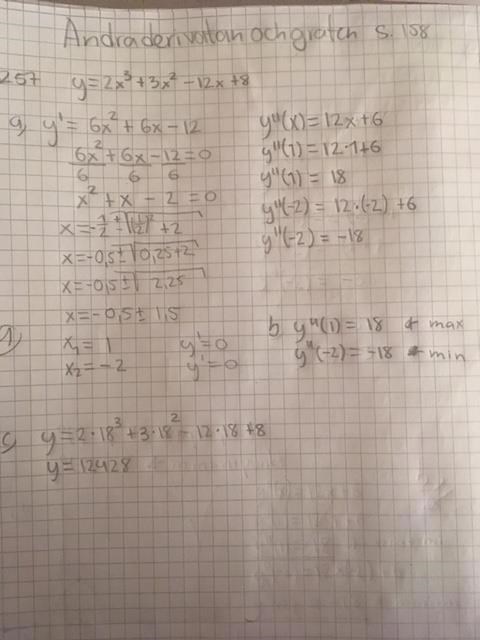 Andraderivatan och grafen s. 158
257 y=2x³+3x²-12x+8
a) y'=6x²+6x-12
6x²+6x-12=0
6 6 6
x²+x-2=0
x=-1/2±√(1/2)²+2
x=-0,5±√0,25+2
x=-0,5±√2,25
x=-0,5±1,5
a) x₁=1 y'=0
x₂=-2 y'=0
y''(x)=12x+6
y''(1)=12·1+6
y''(1)=18
y''(-2)=12·(-2)+6
y''(-2)=-18
b, y''(1)=18 max
y''(-2)=-18 min
c, y=2·18³+3·18²-12·18+8
y=12428